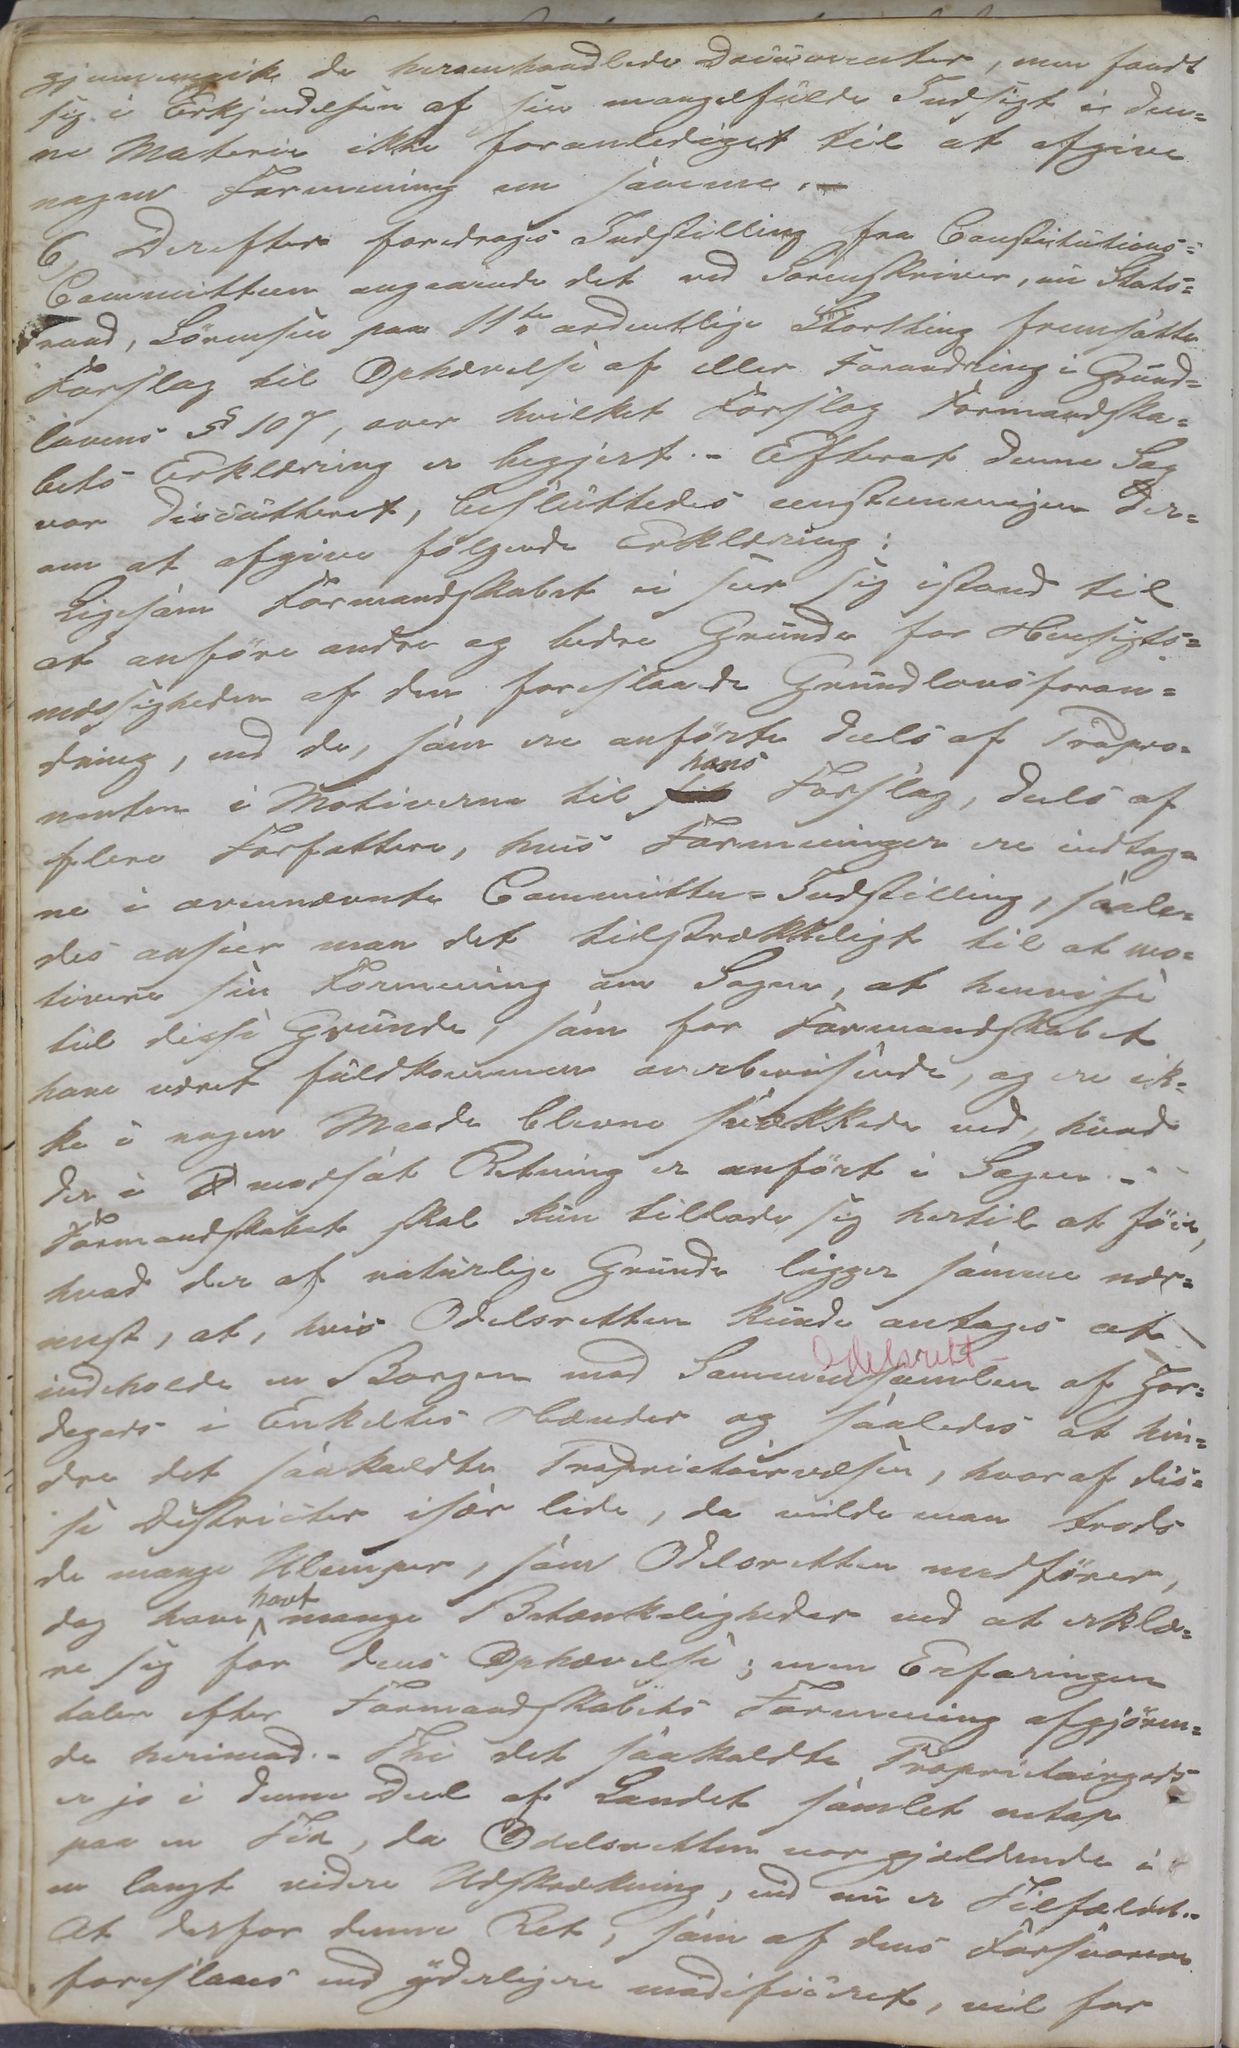 gjennemgik de heromhandlede Documenter, men fandt
sig i Erkjendelsen af sin mangelfulde Indsigt i den-
ne Materie ikke foranlediget til at afgive
nogen Formening om samme. -
6, Derefter foredroges Indstilling fra Constitutions-
Committeen angaaende det ved Sorenskriver, nu Stats-
raad, Sørensen paa 11te ordentlige Storthing fremsatte
Forslag til Ophævelse af eller Forandring i Grund-
lovens § 107, over hvilket Forslag Formandska-
bets Erklæring er begjert. - Efterat denne Sag
var discutteret, besluttedes eenstemmigen der-
om at afgive følgende Erklæring:
Ligesom Formandskabet ei seer sig istand til
at anføre andre og bedre Grunde for Hensigts-
mæssigheden af den foreslaaede Grundlovsforan-
dring, end de, som ere anførte deels af Propo-
nenten i Motiverne til hans Forslag, deels af
flere Forfattere, hvis Formeninger ere indtag-
ne i ovennævnte Committee-Indstilling, saale-
des anseer man det tilstrækkeligt til at mo-
tivere sin Formening om Sagen, at henvise
til disse Grunde, som for Formandskabet
have været fuldkommen overbevisende, og ere ik-
ke i nogen Maade blevne svækkede ved, hvad
der i modsat Retning er anført i Sagen. -
Formandskabet skal kun tillade sig hertil at føie,
hvad der af naturlige Grunde ligger samme nær-
mest, at, hvis Odelsretten kunde antages at
Odelsrett
indeholde en Borgen mod Sammensamlen af Jor-
degods i Enkeltes Hænder og saaledes at hin-
dre det saakaldte Proprietairvæsen, hvoraf dis-
se Districter især lide, da vilde man trods
de mange Ulemper, som Odelsretten medfører,
dog have havt mange Betænkeligheder ved at erklæ-
re sig for dens Ophævelse; men Erfaringen
taler efter Formandskabets Formening afgjøren-
de herimod. - Thi det saakaldte Proprietairgods
er jo i denne Deel af Landet samlet netop
paa en Tid, da Odelsretten var gjældende i
en langt videre Udstrækning, end nu er Tilfældet. -
At derfor denne Ret, som af dens Forsvarere
foreslaaes end yderligere modificeret, vil for